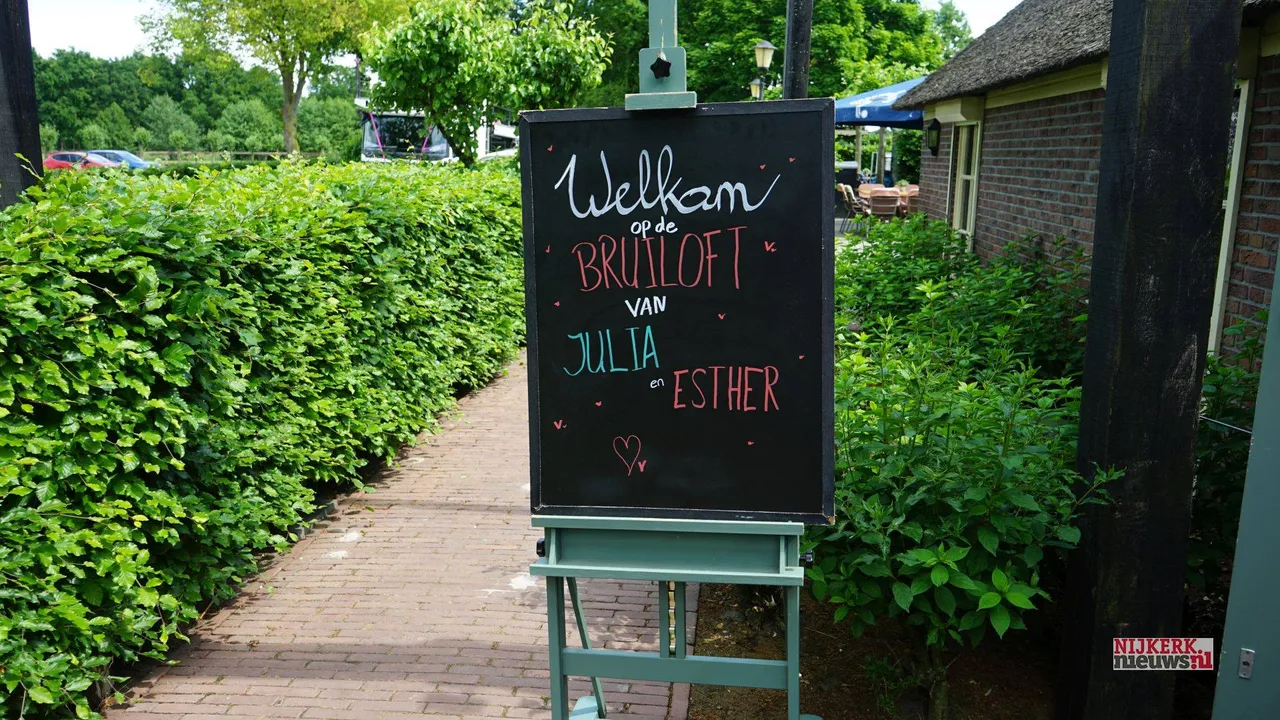 Welkam
op de
BRUILOFT
VAN
JULIA
en ESTHER
NIJKERK
nieuws.nl